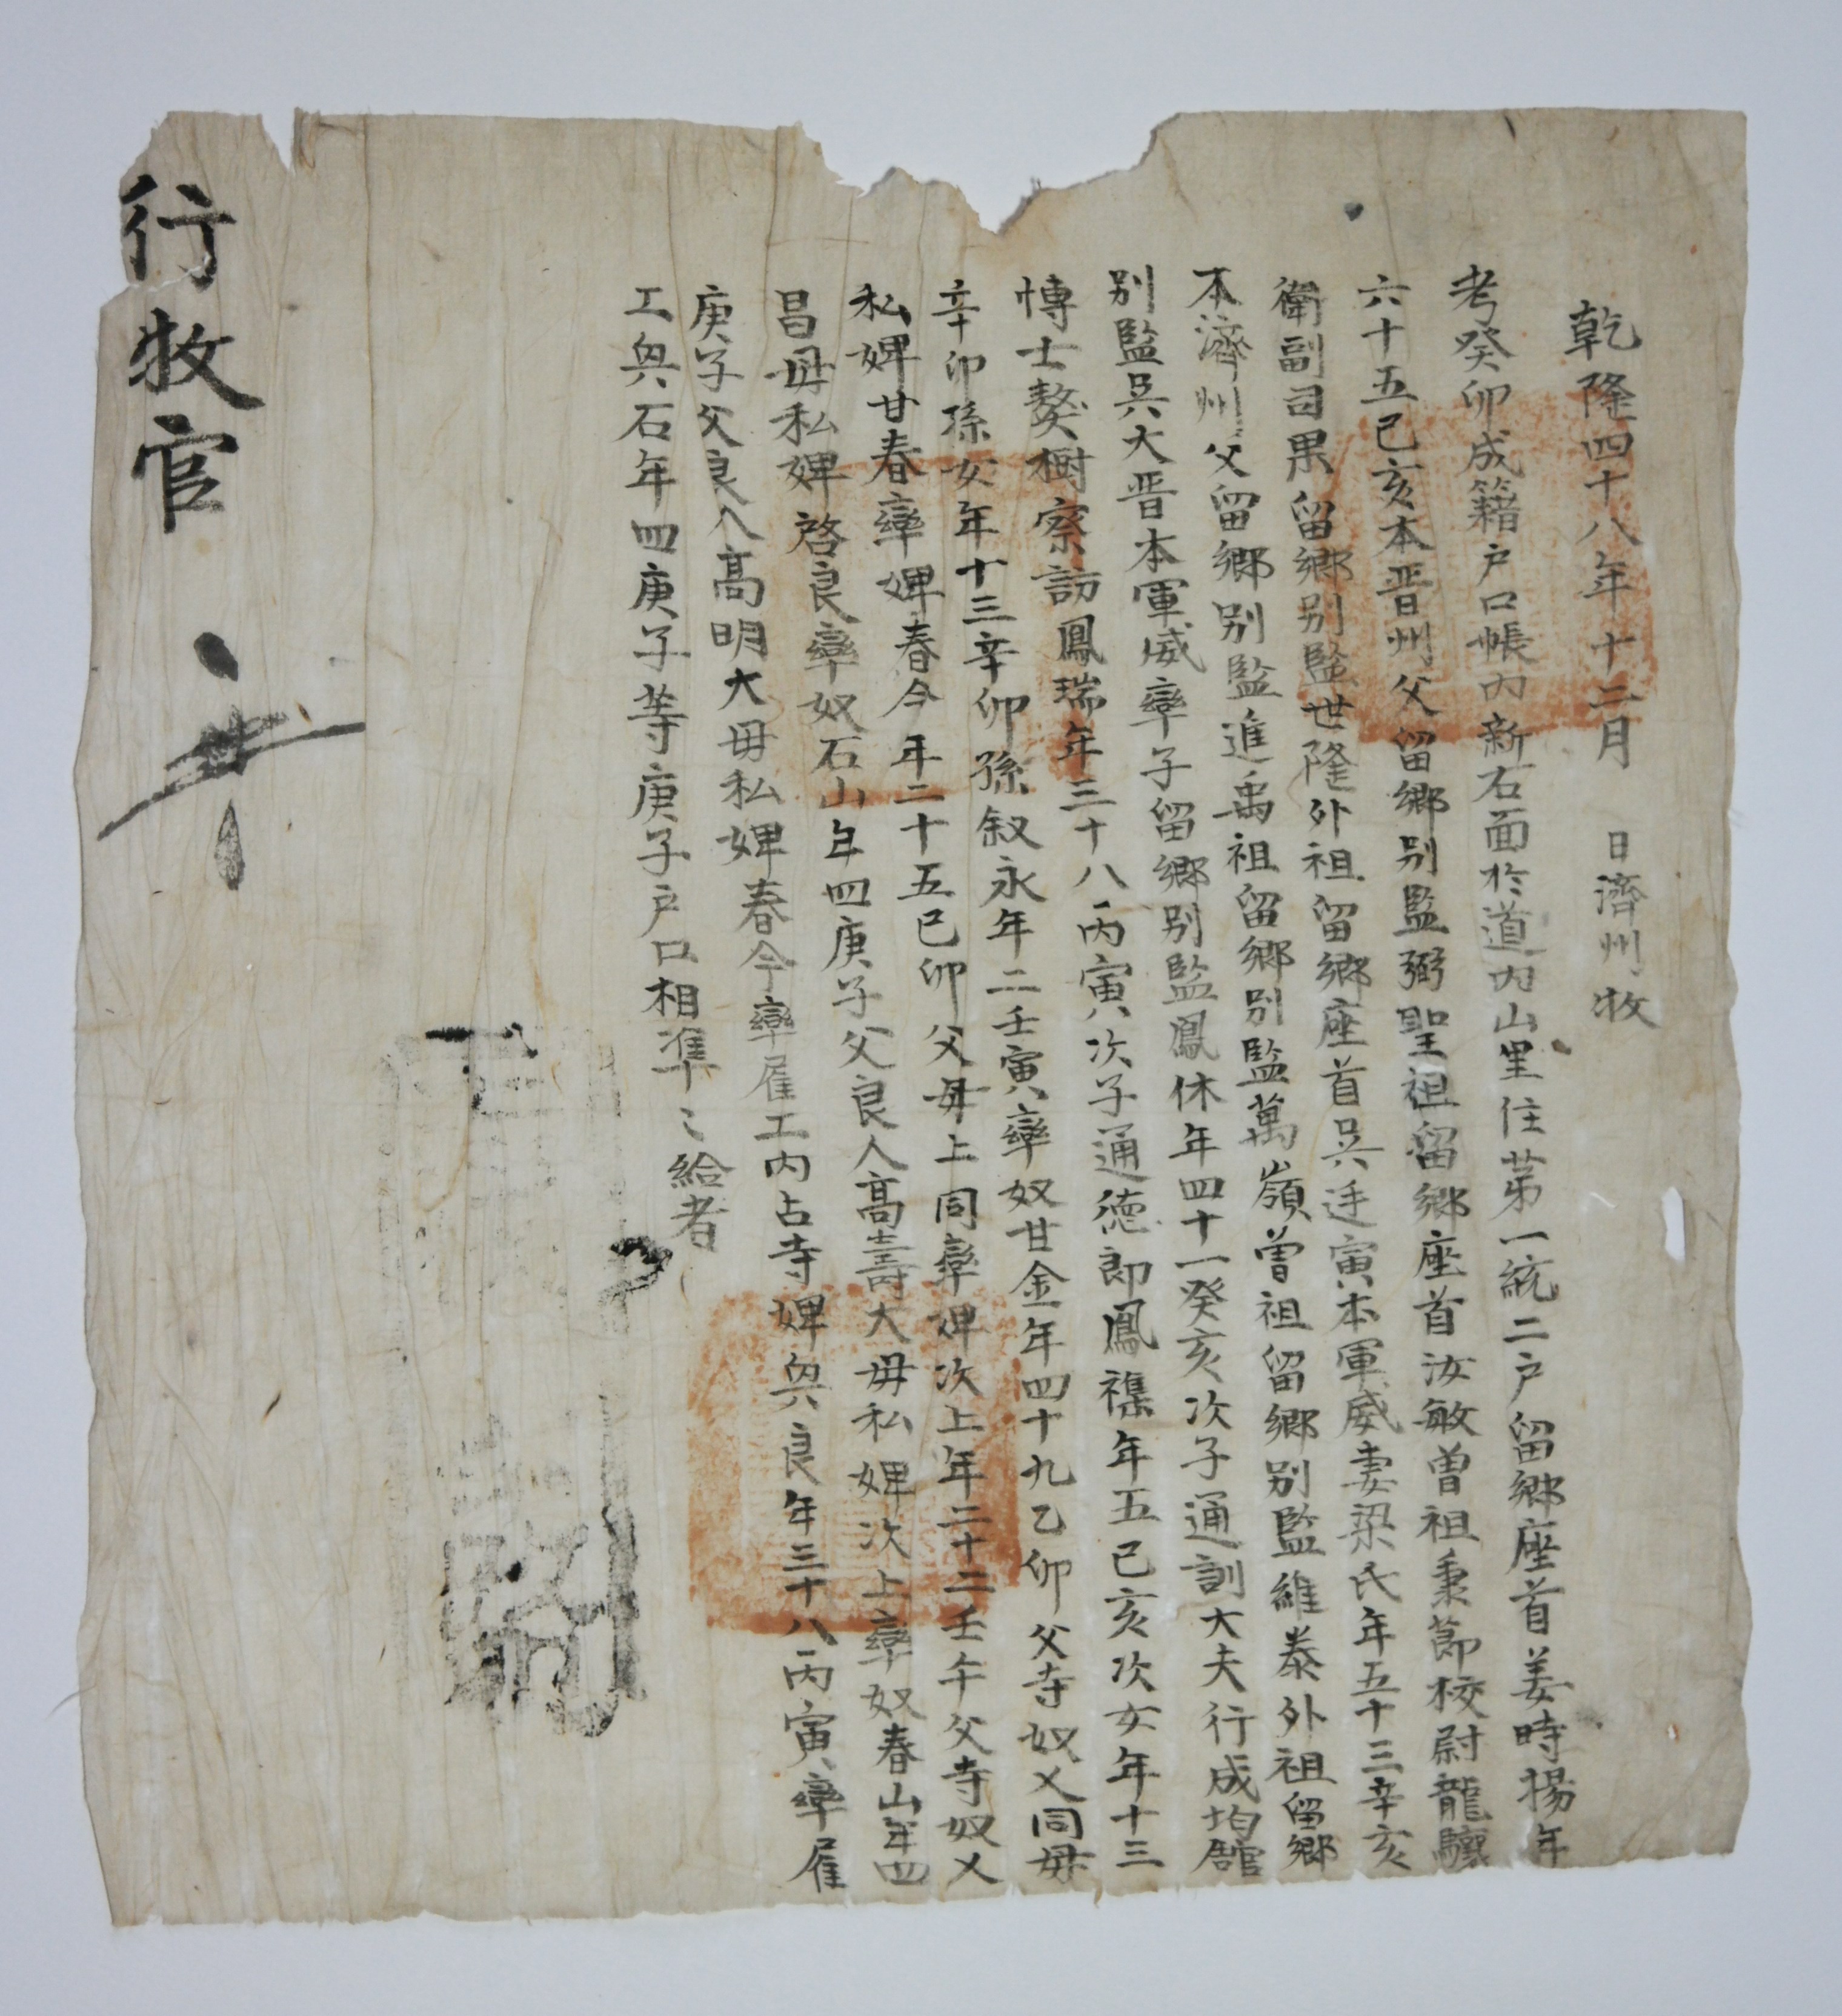 乾隆四十八年十二月 日濟州牧
考癸卯成籍户口帳內新右面於道內山里住第一統二户留鄉座首姜時揚年
六十五己亥本晋州父留鄉別監弼聖祖留鄉座首汝敏曾祖秉節校尉龍驤
衛副司果留鄉別監世隆外祖留鄉座首吳廷寅本軍威妻梁氏年五十三辛亥
本濟州父留鄉別監進禹祖留鄉別監萬嶺曾祖留鄉別監維泰外祖留鄉
別監吳大晋本軍威率子留鄉別監鳳休年四十一癸亥次子通訓大夫行成均館
博士獒樹察訪鳳瑞年三十八丙寅次子通德郎鳳禥年五己亥次女年十三
辛卯孫女年十三辛卯孫叙永年二壬寅率奴甘金年四十九乙卯父寺奴乂同母
私婢甘春率婢春今年二十五己卯父母上同率婢次上年二十二壬午父寺奴乂
昌母私婢啓良率奴石山年四庚子父良人高壽大母私婢次上率奴春山年四
庚子父良人高明大母私婢春今率雇工內占寺婢與良年三十八丙寅率雇
工與石年四庚子等庚子户口相準〻給者
行牧官